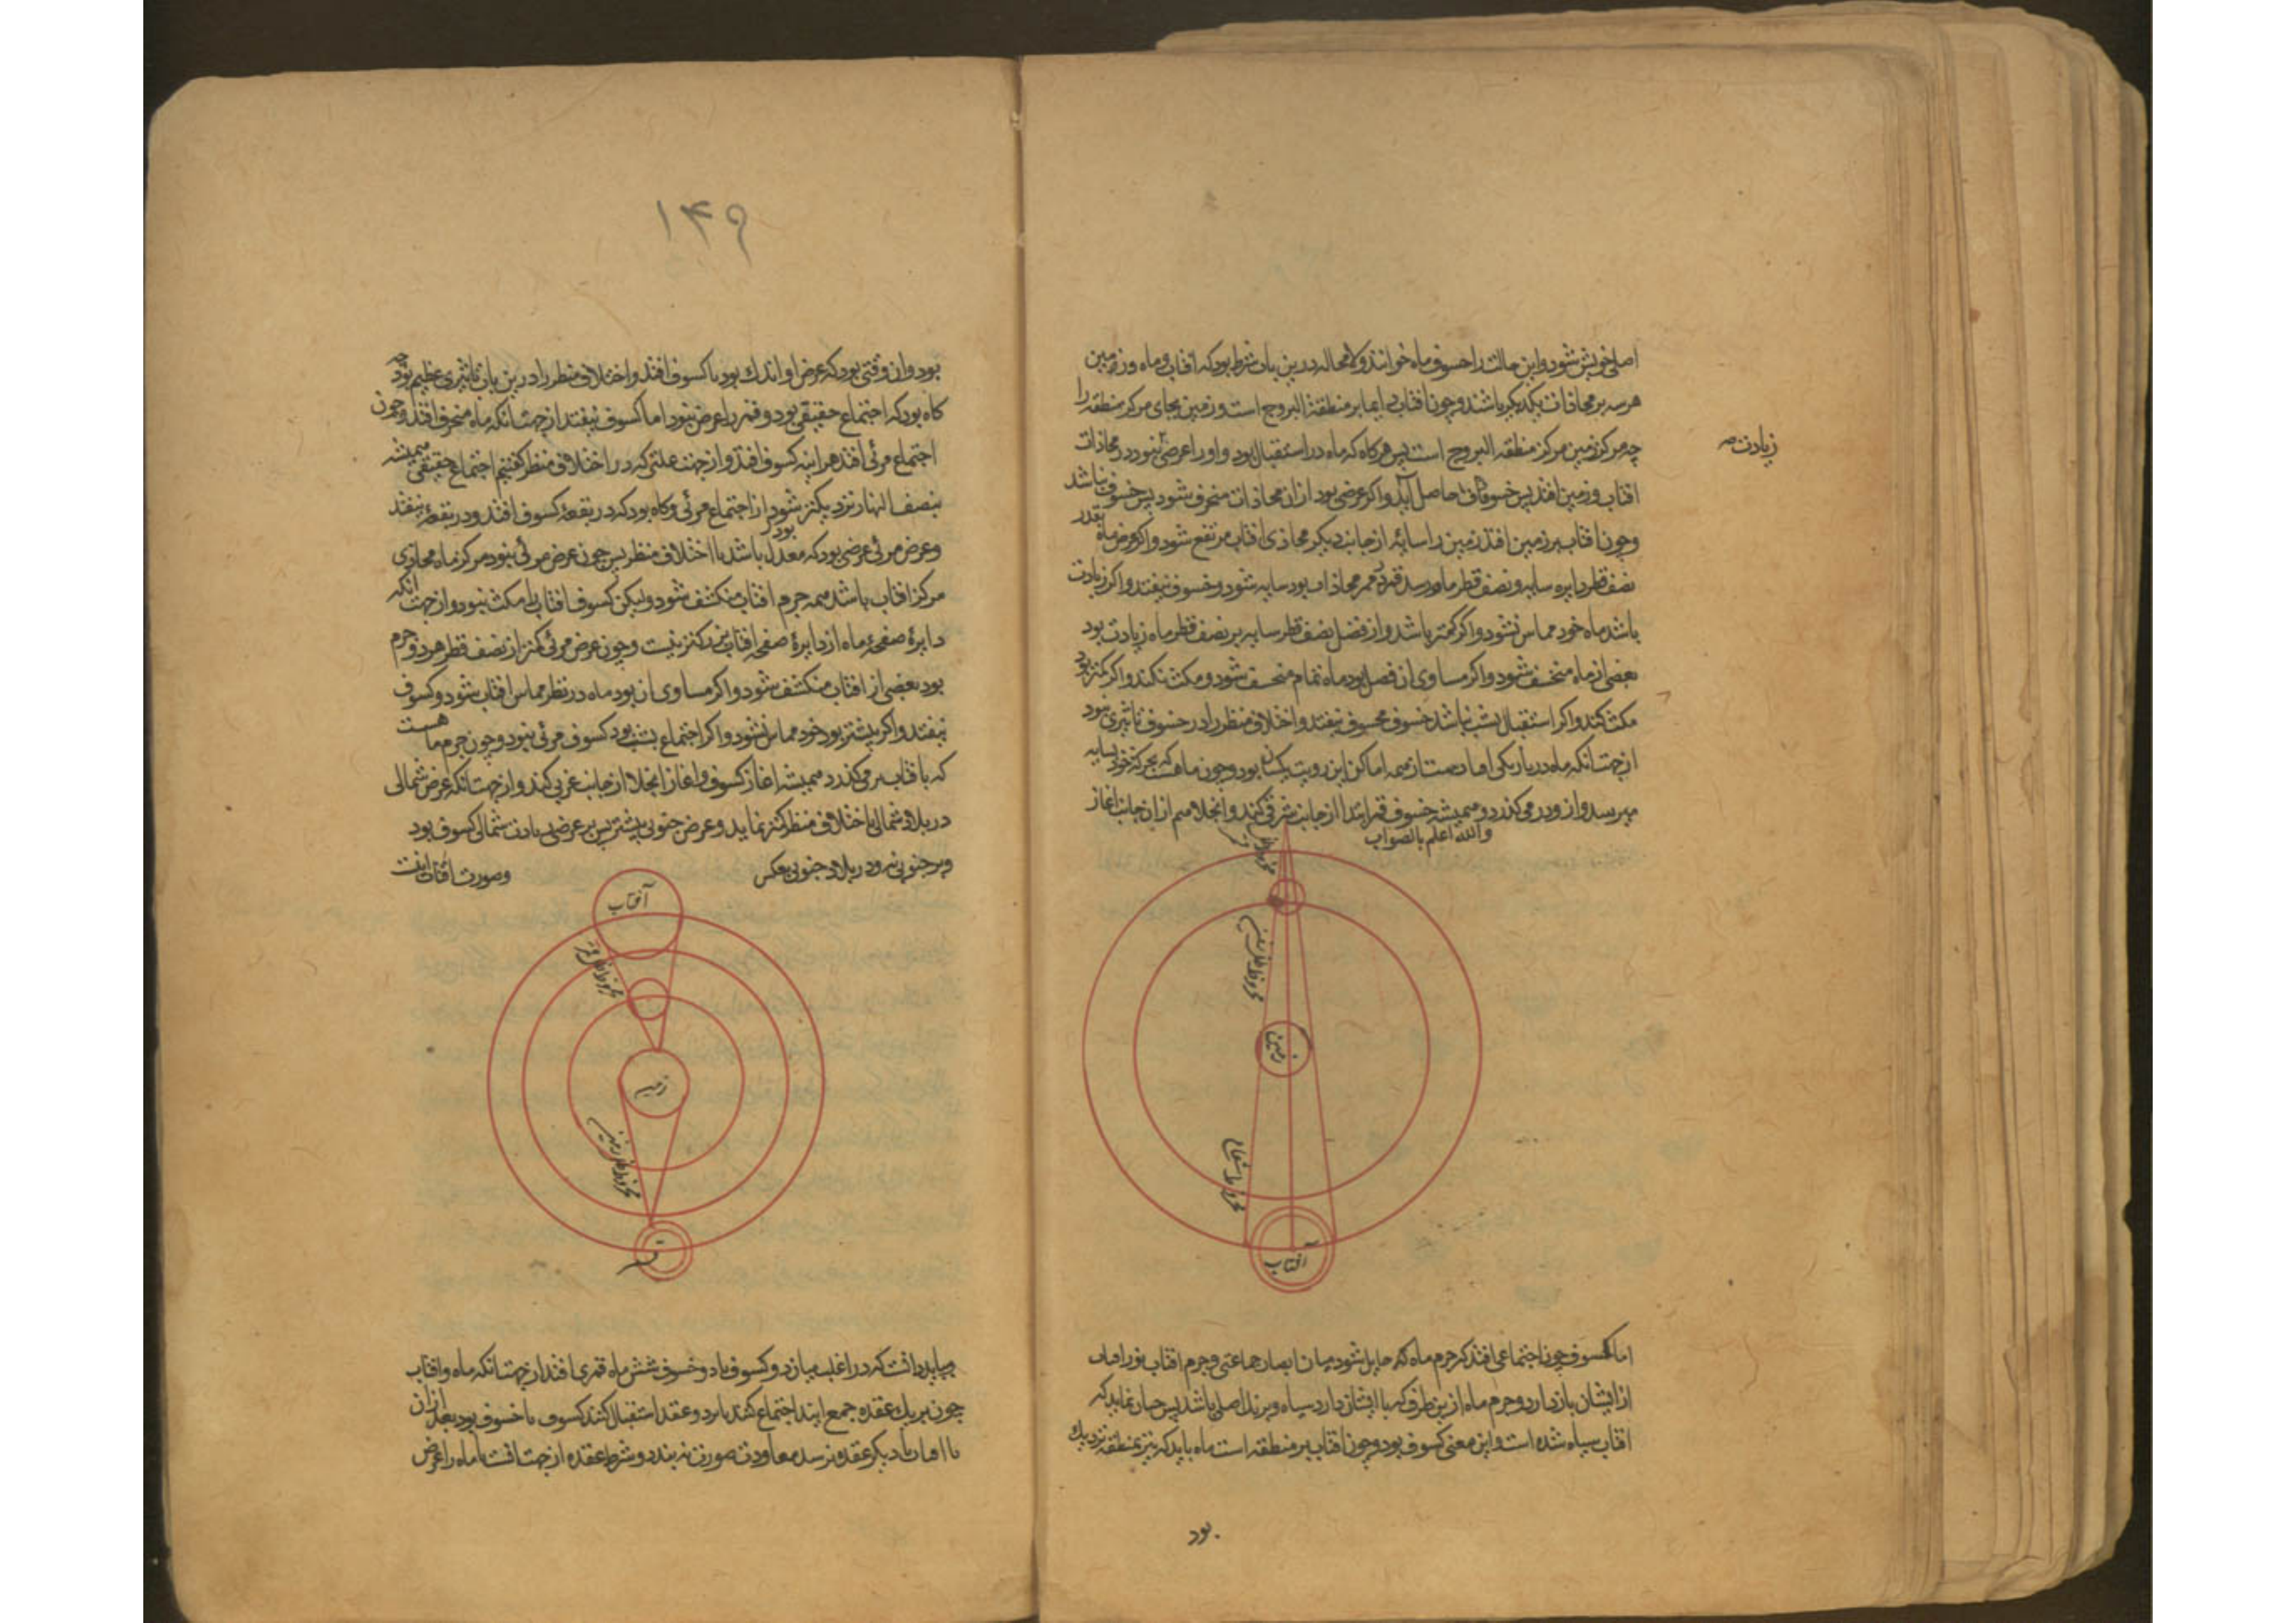 اصلی خویش شود و این حالت را خسوف ماه خوانند و لامحاله درین باب شرط بود که افتاب و ماه و زمین
هر سه بر محاذات یکدیکر باشند و چون افتاب دایما بر منطقة البروج است و زمین بجای مرکز منطقه را
چه مرکز زمین مرکز منطقه البروج است پس هرکاه که ماه در استقبال بود و او را عرضی نبود در محاذات
زیادت صه
افتاب و زمین افتد پس خسوف حاصل آید و اکر عرضی بود از ان محاذات منحرف شود پس خسوف نباشد
و چون افتاب بر زمین افتد زمین را سایه از جانب دیکر محاذی افتاب مرتفع شود و اکر عرض ماه بقدر
نصف قطر دایره سایه و نصف قطر ماه بود سایه شود و خسوف نیفتد و اکر زیادت
باشد ماه خود مماس نشود و اکر کمتر باشد و از فضل نصف قطر سایه بر نصف قطر ماه زیادت بود
بعضی از ماه منخسف شود و اکر مساوی ان فضل بود ماه تمام منخسف شود و مکث نکند و اکر کمتر بود
مکث کند و اکر استقبال بشب نباشد خسوف محسوس نیفتد و اختلاف منظر را در خسوف تاثیری نبود
از جهت انکه ماه در تاریکی افتادست از همه اماکن این رویت یکسان بود و چون ماهست که بحرکة خود بسایه
میرسد و از و در می کذرد و همیشه خسوف قمر ابتدا از جانب شرقی کند و انجلا هم از ان جانب اغاز
والله اعلم بالصواب
مخروط ظل زمین
زمین
مخروط شعاع
آفتاب
اما کسوف چون اجتماعی افتد که جرم ماه که حایل شود میان ابصار جماعتی و جرم افتاب نور افتاب
از ایشان باز دارد و جرم ماه از ین طرف که با ایشان دارد سیاه و برنک اصلی باشد پس چنان نماید که
افتاب سیاه شده است و این معنی کسوف بود و چون افتاب بر منطقه است ماه باید که نیز بمنطقه نزدیک
بود
۱۴۹
بود و ان وقتی بود که عرض او اندک بود تا کسوف افتد و اختلاف منظر را درین باب تاثیری عظیم بود چه
کاه بود که اجتماع حقیقی بود و قمر را عرض نبود اما کسوف نیفتد از جهت انکه ماه منحرف افتد و چون
اجتماع مرئی افتد هر اینه کسوف افتد و از جهت علتی که در اختلاف منظر کفتیم اجتماع حقیقی همیشه
بنصف النهار نزدیکتر شود از اجتماع مرئی و کاه بود که در بقعهٔ کسوف افتد و در بقعهٔ نیفتد
و عرض مرئی عرضی بود که معدل باشد با اختلاف منظر پس چون عرض مرئی نبود مرکز ماه محاذی
مرکز افتاب باشد همه جرم افتاب منکسف شود ولیکن کسوف افتاب را مکث نبود و از جهت انکه
دایرهٔ صفحهٔ ماه از دایرهٔ صفحه افتاب بزرکتر نیست و چون عرض مرئی کمتر از نصف قطر هر دو جرم
بود بعضی از افتاب منکسف شود و اکر مساوی ان بود ماه در نظر مماس افتاب شود و کسوف
نیفتد و اکر بیشتر بود خود مماس نشود و اکر اجتماع بشب بود کسوف مرئی نبود و چون جرم ماهست
که بافتاب بر می کذرد همیشه اغاز کسوف و اغاز انجلا از جانب غربی کند و از جهت انکه عرض شمالی
در بلاد شمالی با اختلاف منظر کمتر نماید و عرض جنوبی بیشتر پس بر عرض زیادت شمالی کسوف بود
و بر جنوبی نبود و در بلاد جنوبی بعکس
و صورت اینست
آفتاب
مخروط ظل قمر
زمین
مخروط ظل زمین
قمر
و بباید دانست که در اغلب میان دو کسوف یا دو خسوف شش ماه قمری افتد از جهت انکه ماه و افتاب
چون بر یک عقده جمع ایند اجتماع کنند یا بر دو عقد استقبال کنند کسوف یا خسوف بود بعد ازان
تا افتاب بدیکر عقده نرسد معاودت صورت نه بندد و شرط عقده از جهت انست تا ماه را عرض